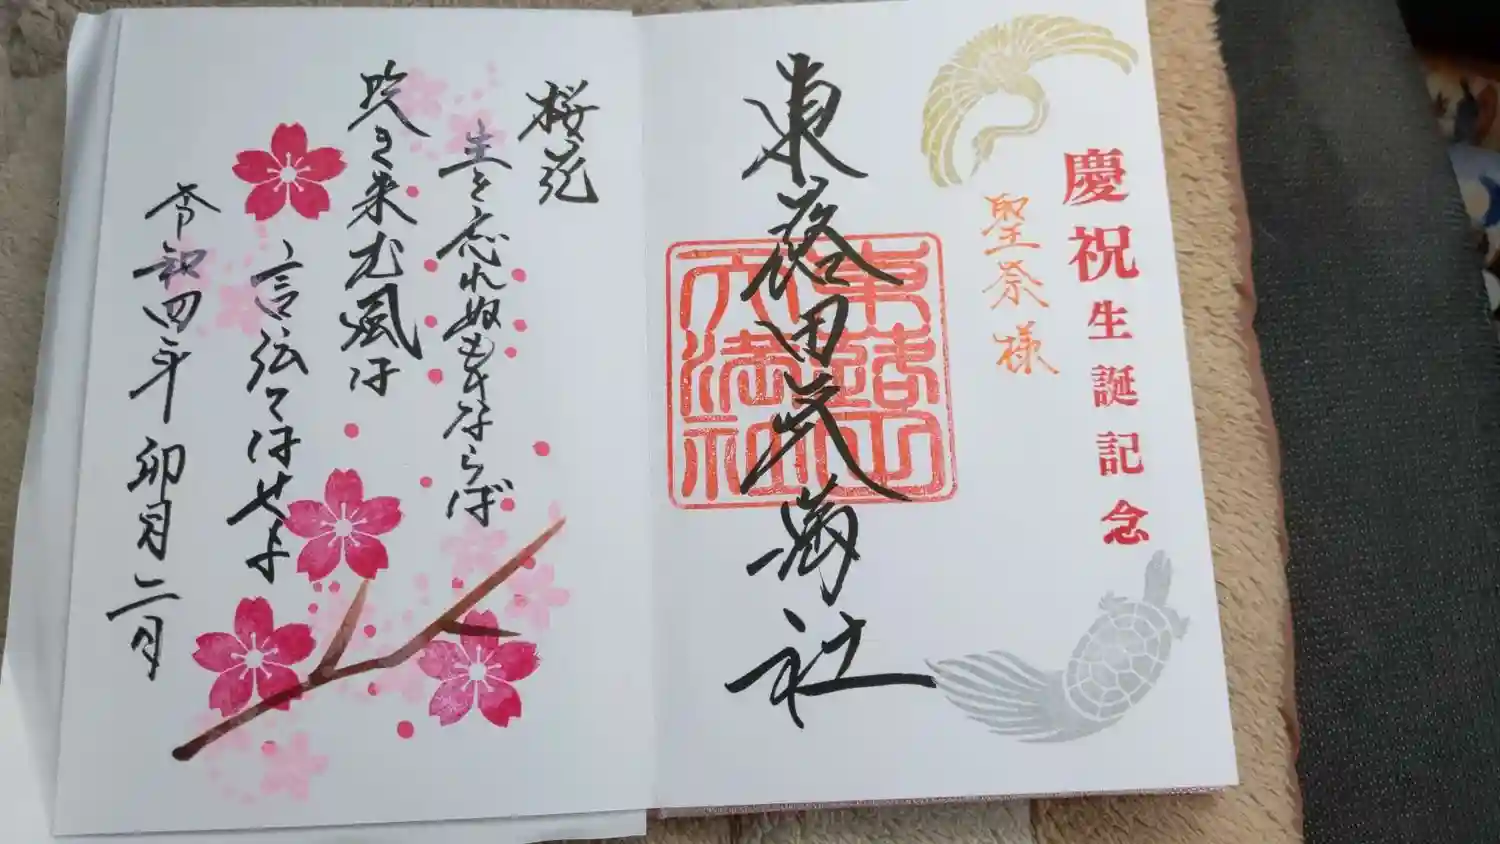 慶祝生誕記念
聖奈様
東蕗田天満社
東蕗田
天満社
桜花
主を忘れぬものならば
吹き来む風に
言伝てはせよ
令和四年卯月二日